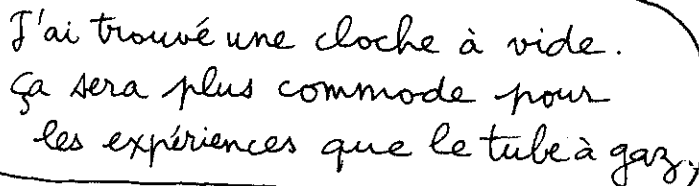 J'ai trouvé une cloche à vide.
Ça sera plus commode pour
les expériences que le tube à gaz,